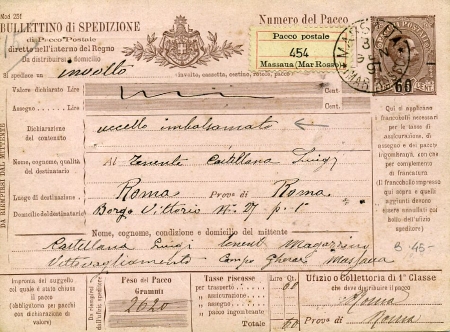 Mod 25f
BULLETTINO di SPEDIZIONE
di Pacco Postale
diretto nell'interno del Regno
Da distribuirsi a domicilio
Numero del Pacco
Pacco postale
454
Massaua (Mar Rosso)
MASSAUA
60
Si spedisce un involto
(Involto, cassetta, cestino, rotolo, pacco)
Valore dichiarato Lire
Cent.
Assegno Lire
Cent.
Dichiarazione del contenuto
uccello imbalsamato
Nome, cognome, qualità del destinatario
Al Tenente Castellana Luigi
Luogo di destinazione
Roma Prova di Roma
Domicilio del destinatario
Borgo Vittorio N. 27 p. 1°
Nome, cognome, condizione e domicilio del mittente
Castellana Luigi Magazzini
Vettovagliamento Campo Massaua
DA RIEMPIERSI DAL MITTENTE
Qui si applicano
i francobolli necessari
per le tasse di
assicurazione,
di assegno e dei pacchi
ingombranti, con che
per complemento
di francatura
(I francobolli impressi
qui sopra e quelli
aggiunti devono
essere annullati coi
bollo dell'ufizio
speditore)
B 45-
Impressa del suggello
col quale è stata chiusa
il pacco
(obbligatorio per pacchi
con dichiarazione
di valore)
Da riempirsi
Peso del Pacco
Grammi
2620
Tasse riscosse
Lire Ct.
per trasporto 60
" assicurazione
" assegno
" ingombro
Totale 60
Ufizio o Collettoria di 1ª Classe
che deve distribuire il pacco
Roma
Prova di Roma